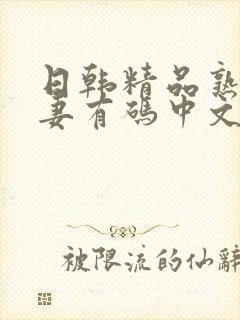 日韩精品熟
妻有码中文
被限流的仙辭